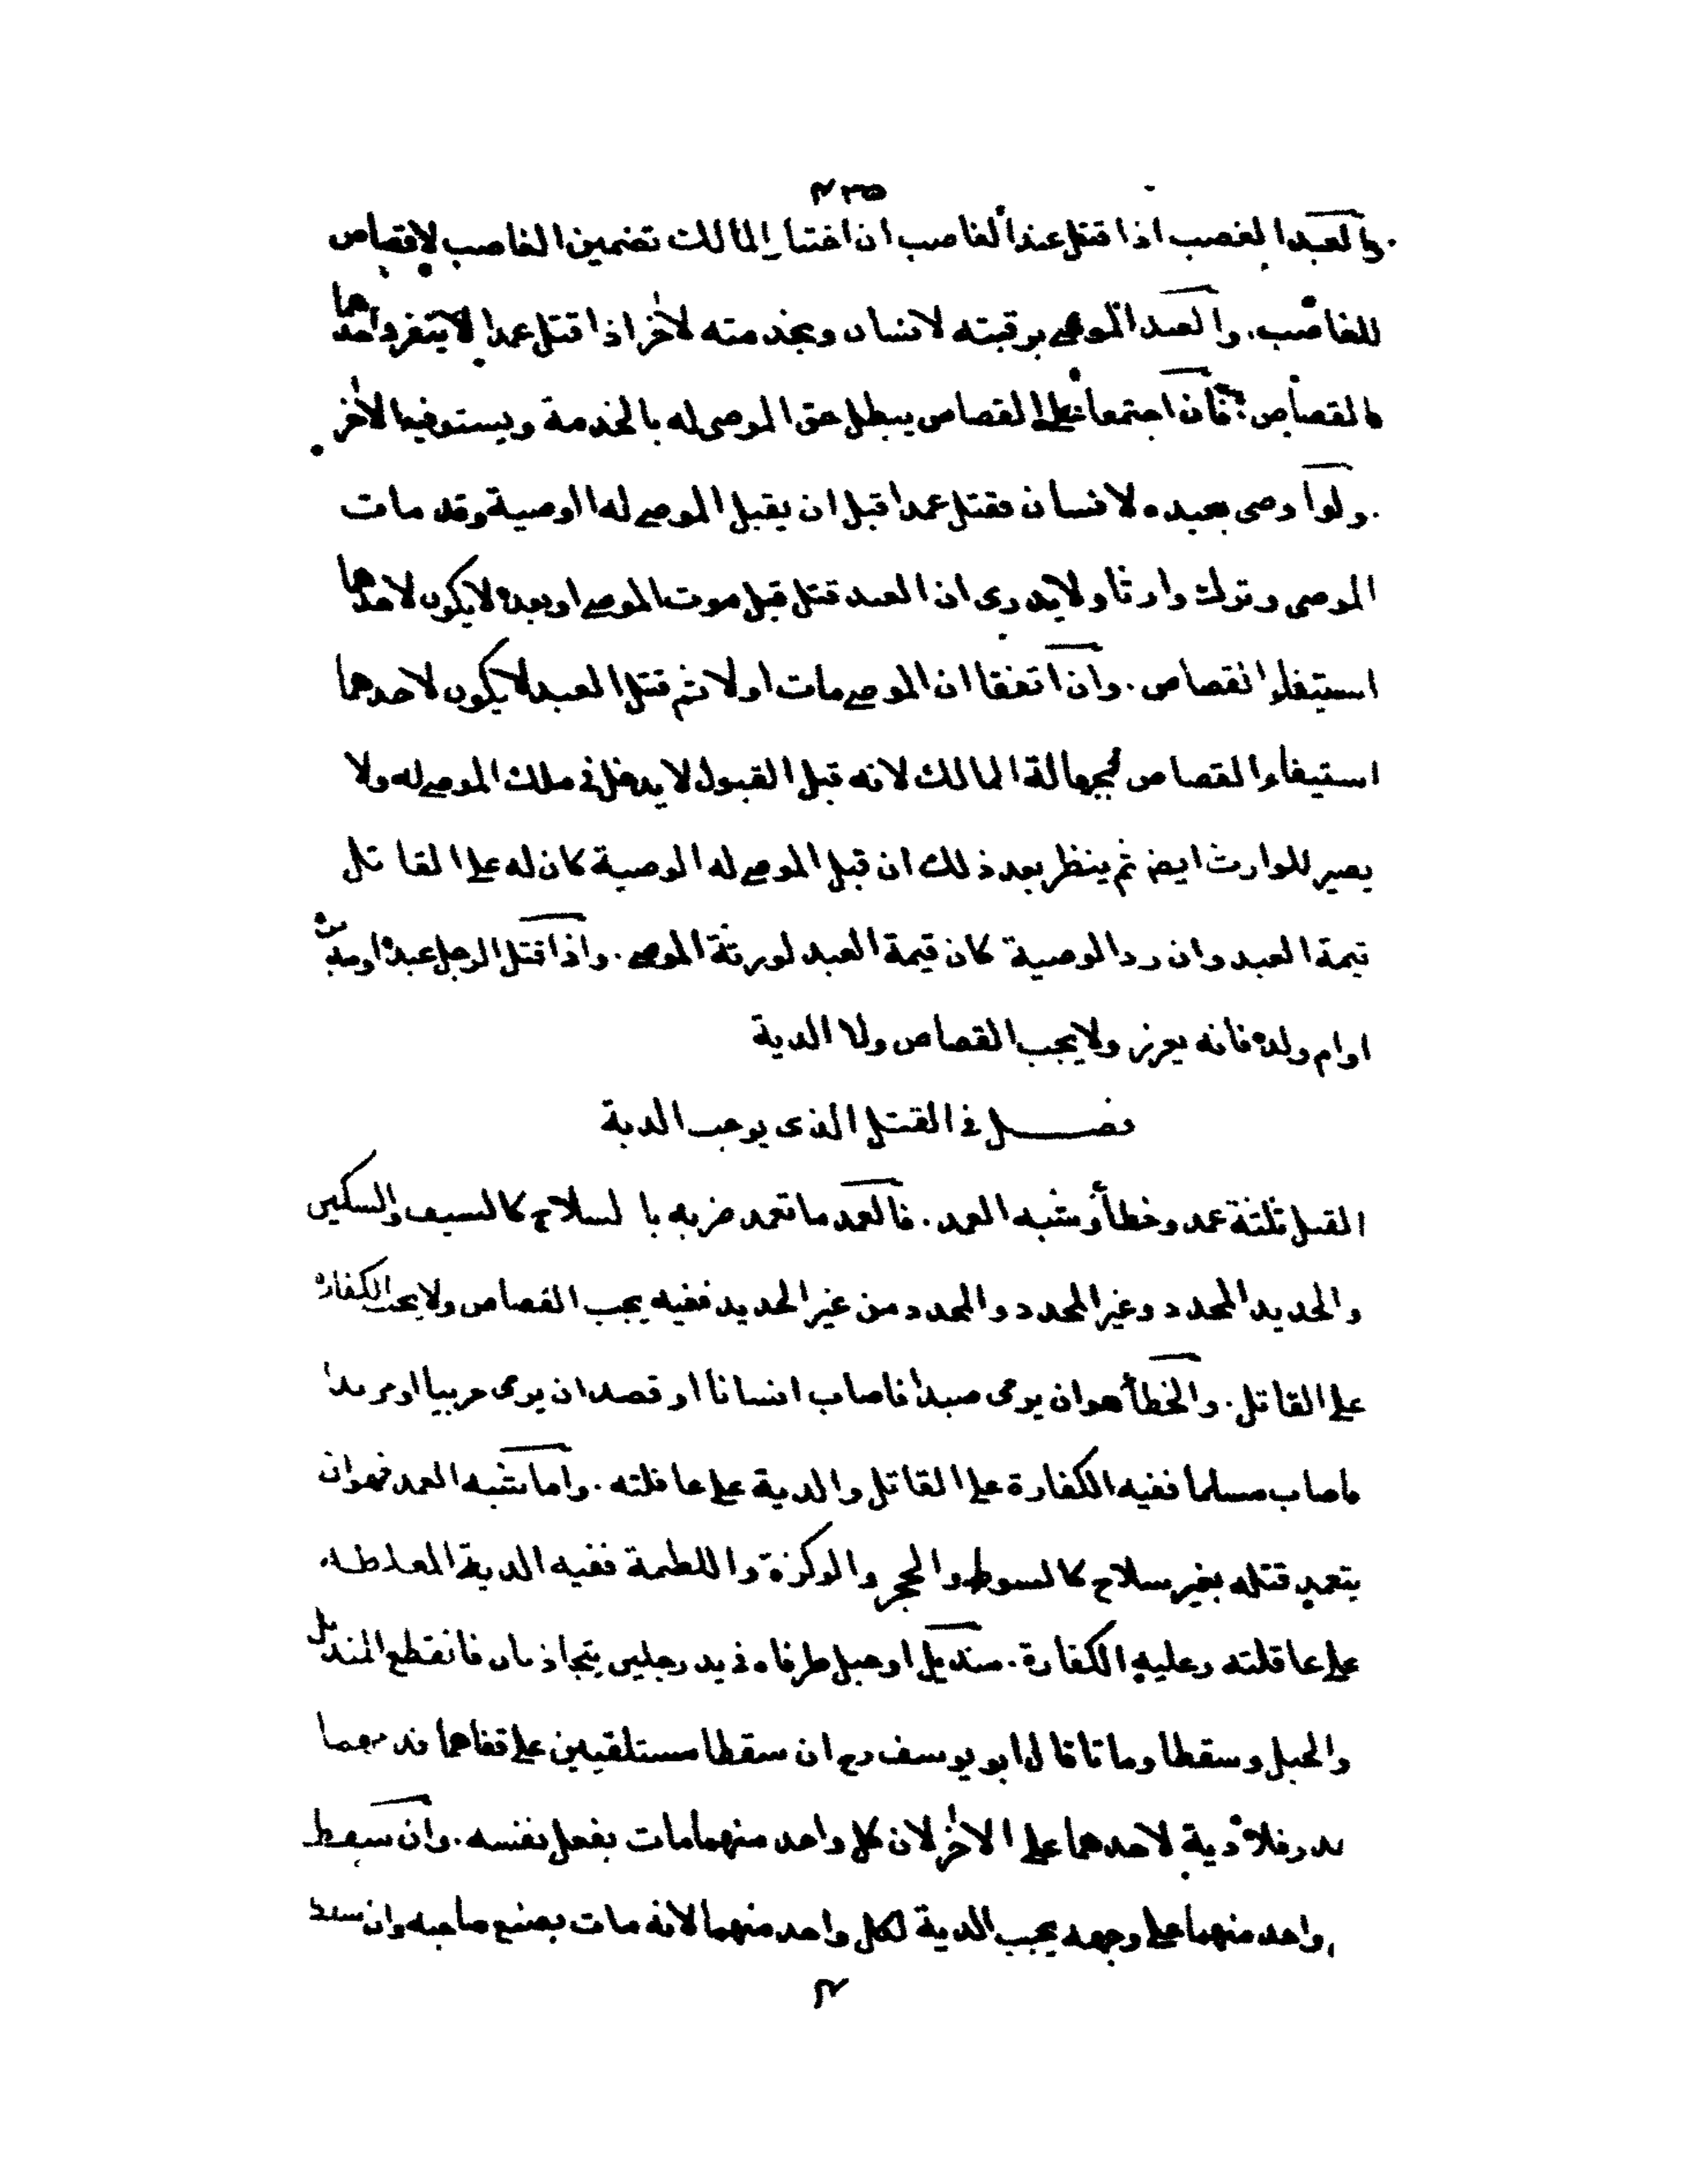 ٤٣٥
والعبد الغصب اذا قتل عند الغاصب ان اختار المالك تضمين الغاصب لا قصاص
للغاصب . والعبد الموصى برقبته لانسان وبخدمته لآخر اذا قتل عمدا لا يتفرد احدهما
بالقصاص فان اجتمعا على القصاص يبطل حق الموصى له بالخدمة ويستوفيها الآخر
. ولو اوصى بعبده لانسان فقتل عمدا قبل ان يقبل الموصى له الوصية وقد مات
الموصى وترك وارثا ولا يدرى ان العبد قتل قبل موت الموصى او بعده لا يكون لاحدهما
استيفاء القصاص . وان اتفقا ان الموصى مات اولا ثم قتل العبد لا يكون لاحدهما
استيفاء القصاص لجهالة المالك لانه قبل القبول لا يدخل فى ملك الموصى له ولا
يصير للوارث ايضا ثم ينظر بعد ذلك ان قبل الموصى له الوصية كان له على القاتل
قيمة العبد وان رد الوصية كان قيمة العبد لورثة الموصى . واذا قتل الرجل عبده او مدبره
او ام ولده فانه يعزر ولا يجب القصاص ولا الدية
فصل فى القتل الذى يوجب الدية
القتل ثلثة عمد وخطأ وشبه العمد . فالعمد ما تعمد ضربه بالسلاح كالسيف والسكين
والحديد المحدد وغير المحدد والمحدد من غير الحديد ففيه يجب القصاص ولا يجب الكفارة
على القاتل . والخطأ هو ان يرمى صيدا فاصاب انسانا او قصد ان يرمى حربيا او مرتدا
فاصاب مسلما ففيه الكفارة على القاتل والدية على عاقلته . واما شبه العمد فهو ان
يتعمد قتله بغير سلاح كالسوط والحجر والوكزة واللطمة ففيه الدية المغلظة
على عاقلته وعليه الكفارة . منديل او حبل طرفاه فى يد رجلين يتجاذبان فانقطع المنديل
والحبل وسقطا وماتا قال ابو يوسف رح ان سقطا مستلقيين على قفاهما فدمهما
هدر فلا دية لاحدهما على الآخر لان كل واحد منهما مات بفعل نفسه . وان سقط
واحد منهما على وجهه يجب الدية لكل واحد منهما لانه مات بصنع صاحبه وان سقط